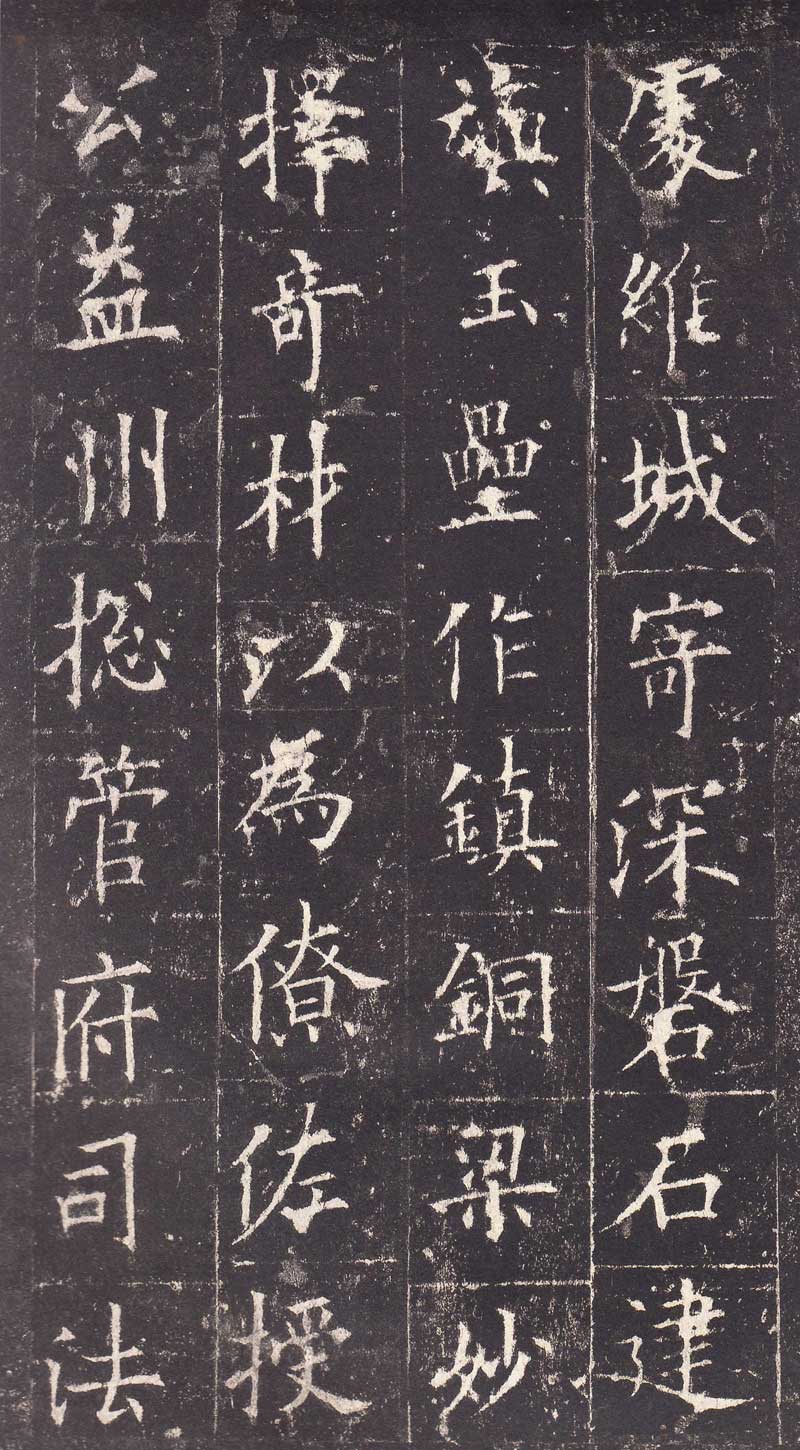 處維城寄深磐石建
旟玉壘作鎮銅梁妙
擇奇材以為僚佐授
公益州揔管府司法